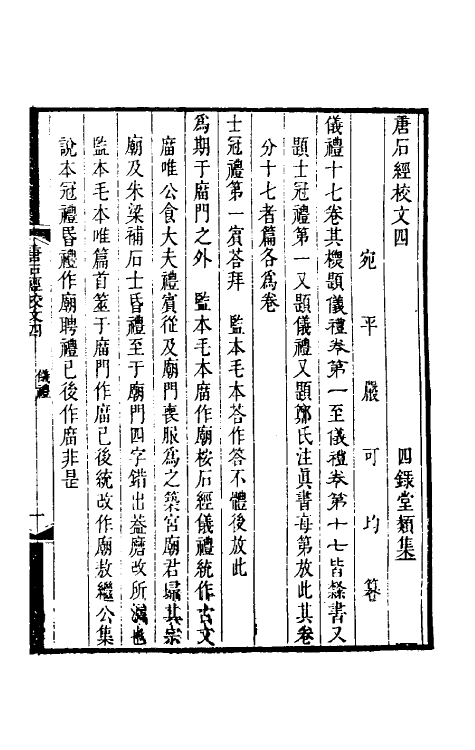 唐石經校文四　四錄堂類集
宛平嚴可均纂
儀禮十七卷其標題儀禮卷第一至儀禮卷第十七皆隸書又
題士冠禮第一又題儀禮又題鄭氏注真書每第放此其卷
分十七者篇各爲卷
士冠禮第一賓荅拜　監本毛本荅作答不體後放此
爲期于庿門之外　監本毛本庿作廟桉石經儀禮統作古文
庿唯公食大夫禮賓從及廟門喪服爲之築宮廟君埽其宗
廟及朱梁補石士昏禮至于廟門四字錯出葢磨改所滅也
監本毛本唯篇首筮于庿門作庿已後統改作廟敖繼公集
說本冠禮昏禮作廟聘禮已後作庿非是
唐石經校文四　儀禮　一